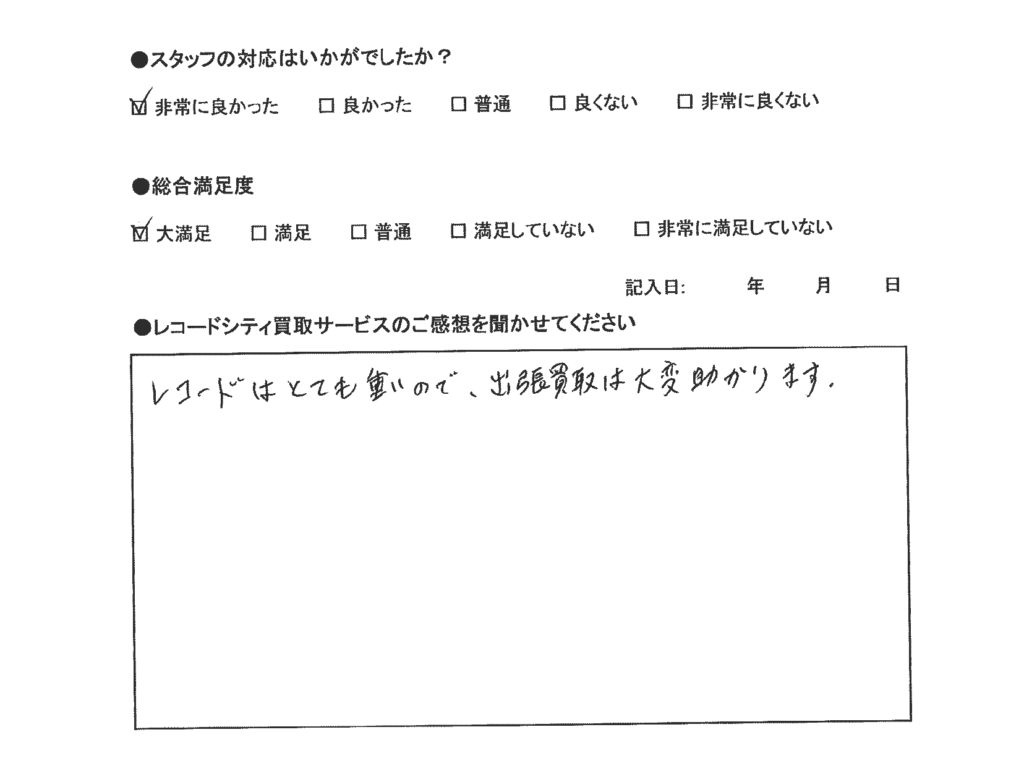 ●スタッフの対応はいかがでしたか？
☑ 非常に良かった □ 良かった □ 普通 □ 良くない □ 非常に良くない
●総合満足度
☑ 大満足 □ 満足 □ 普通 □ 満足していない □ 非常に満足していない
記入日: 年 月 日
●レコードシティ買取サービスのご感想を聞かせてください
レコードはとても重いので、出張買取は大変助かります.